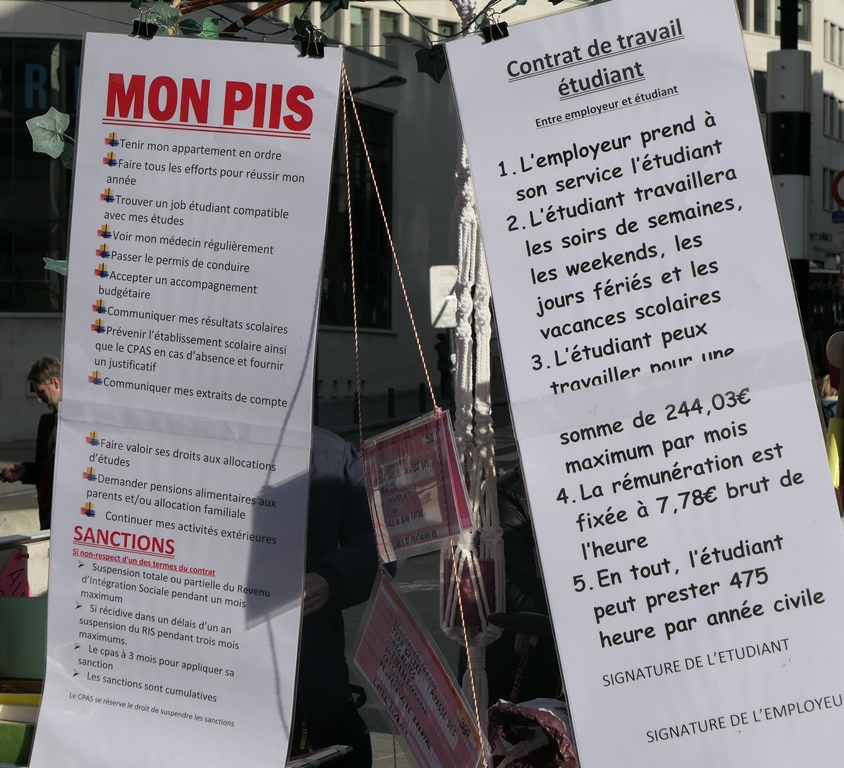 MON PIIS
Tenir mon appartement en ordre
Faire tous les efforts pour réussir mon
année
Trouver un job étudiant compatible
avec mes études
Voir mon médecin régulièrement
Passer le permis de conduire
Accepter un accompagnement
budgétaire
Communiquer mes résultats scolaires
Prévenir l'établissement scolaire ainsi
que le CPAS en cas d'absence et fournir
un justificatif
Communiquer mes extraits de compte
Faire valoir ses droits aux allocations
d'études
Demander pensions alimentaires aux
parents et/ou allocation familiale
Continuer mes activités extérieures
SANCTIONS
Si non-respect d'un des termes du contrat
Suspension totale ou partielle du Revenu
d'Intégration Sociale pendant un mois
maximum
Si récidive dans un délais d'un an
suspension du RIS pendant trois mois
maximums.
Le cpas à 3 mois pour appliquer sa
sanction
Les sanctions sont cumulatives
Le CPAS se réserve le droit de suspendre les sanctions
Contrat de travail
étudiant
Entre employeur et étudiant
1. L'employeur prend à
son service l'étudiant
2. L'étudiant travaillera
les soirs de semaines,
les weekends, les
jours fériés et les
vacances scolaires
3. L'étudiant peux
travailler pour une
somme de 244,03€
maximum par mois
4. La rémunération est
fixée à 7,78€ brut de
l'heure
5. En tout, l'étudiant
peut prester 475
heure par année civile
SIGNATURE DE L'ETUDIANT
SIGNATURE DE L'EMPLOYEU